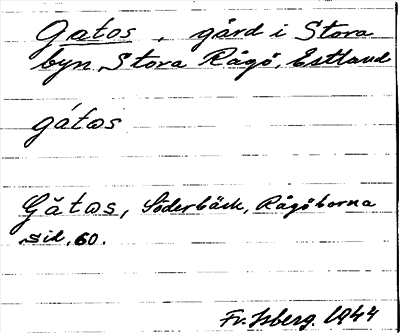 Gatos, gård i Stora
byn, Stora Rågö, Estland
gátos
Gătos, Söderbäck, Rågöborna
sid. 60.
Fr. Isberg. 1944